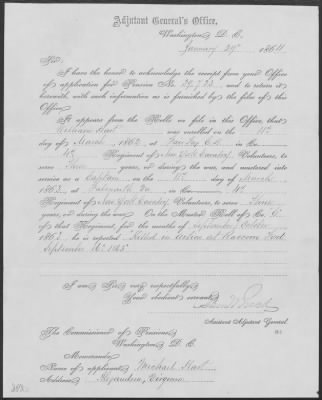 Adjutant General's Office,
Washington, D. C.
January 29" 1864
Sir:
I have the honor to acknowledge the receipt from your Office
of application for Pension No. 29.723, and to return it
herewith, with such information as is furnished by the files of this
Office.
It appears from the Rolls on file in this Office, that
William Hart was enrolled on the
of March, 1862, at Fairfax C.H. in Co.
4th Regiment of New York Cavalry, Volunteers, to
serve three years, or during the war, and mustered into
service as a Captain on the day of March
1863, at Falmouth Va in Co. 4th
Regiment of New York Cavalry, Volunteers, to serve Three
years, or during the war. On the Muster Roll of Co. G
of that Regiment, for the months of September October
1863, he is reported "Killed in action at Raccoon Ford
September 16" 1863"
I am Sir, very respectfully,
Your obedient servant,
Assistant Adjutant General.
The Commissioner of Pensions,
Washington, D. C.
Memoranda:
Name of applicant, Michael Hart
Address, Alexandria, Virginia